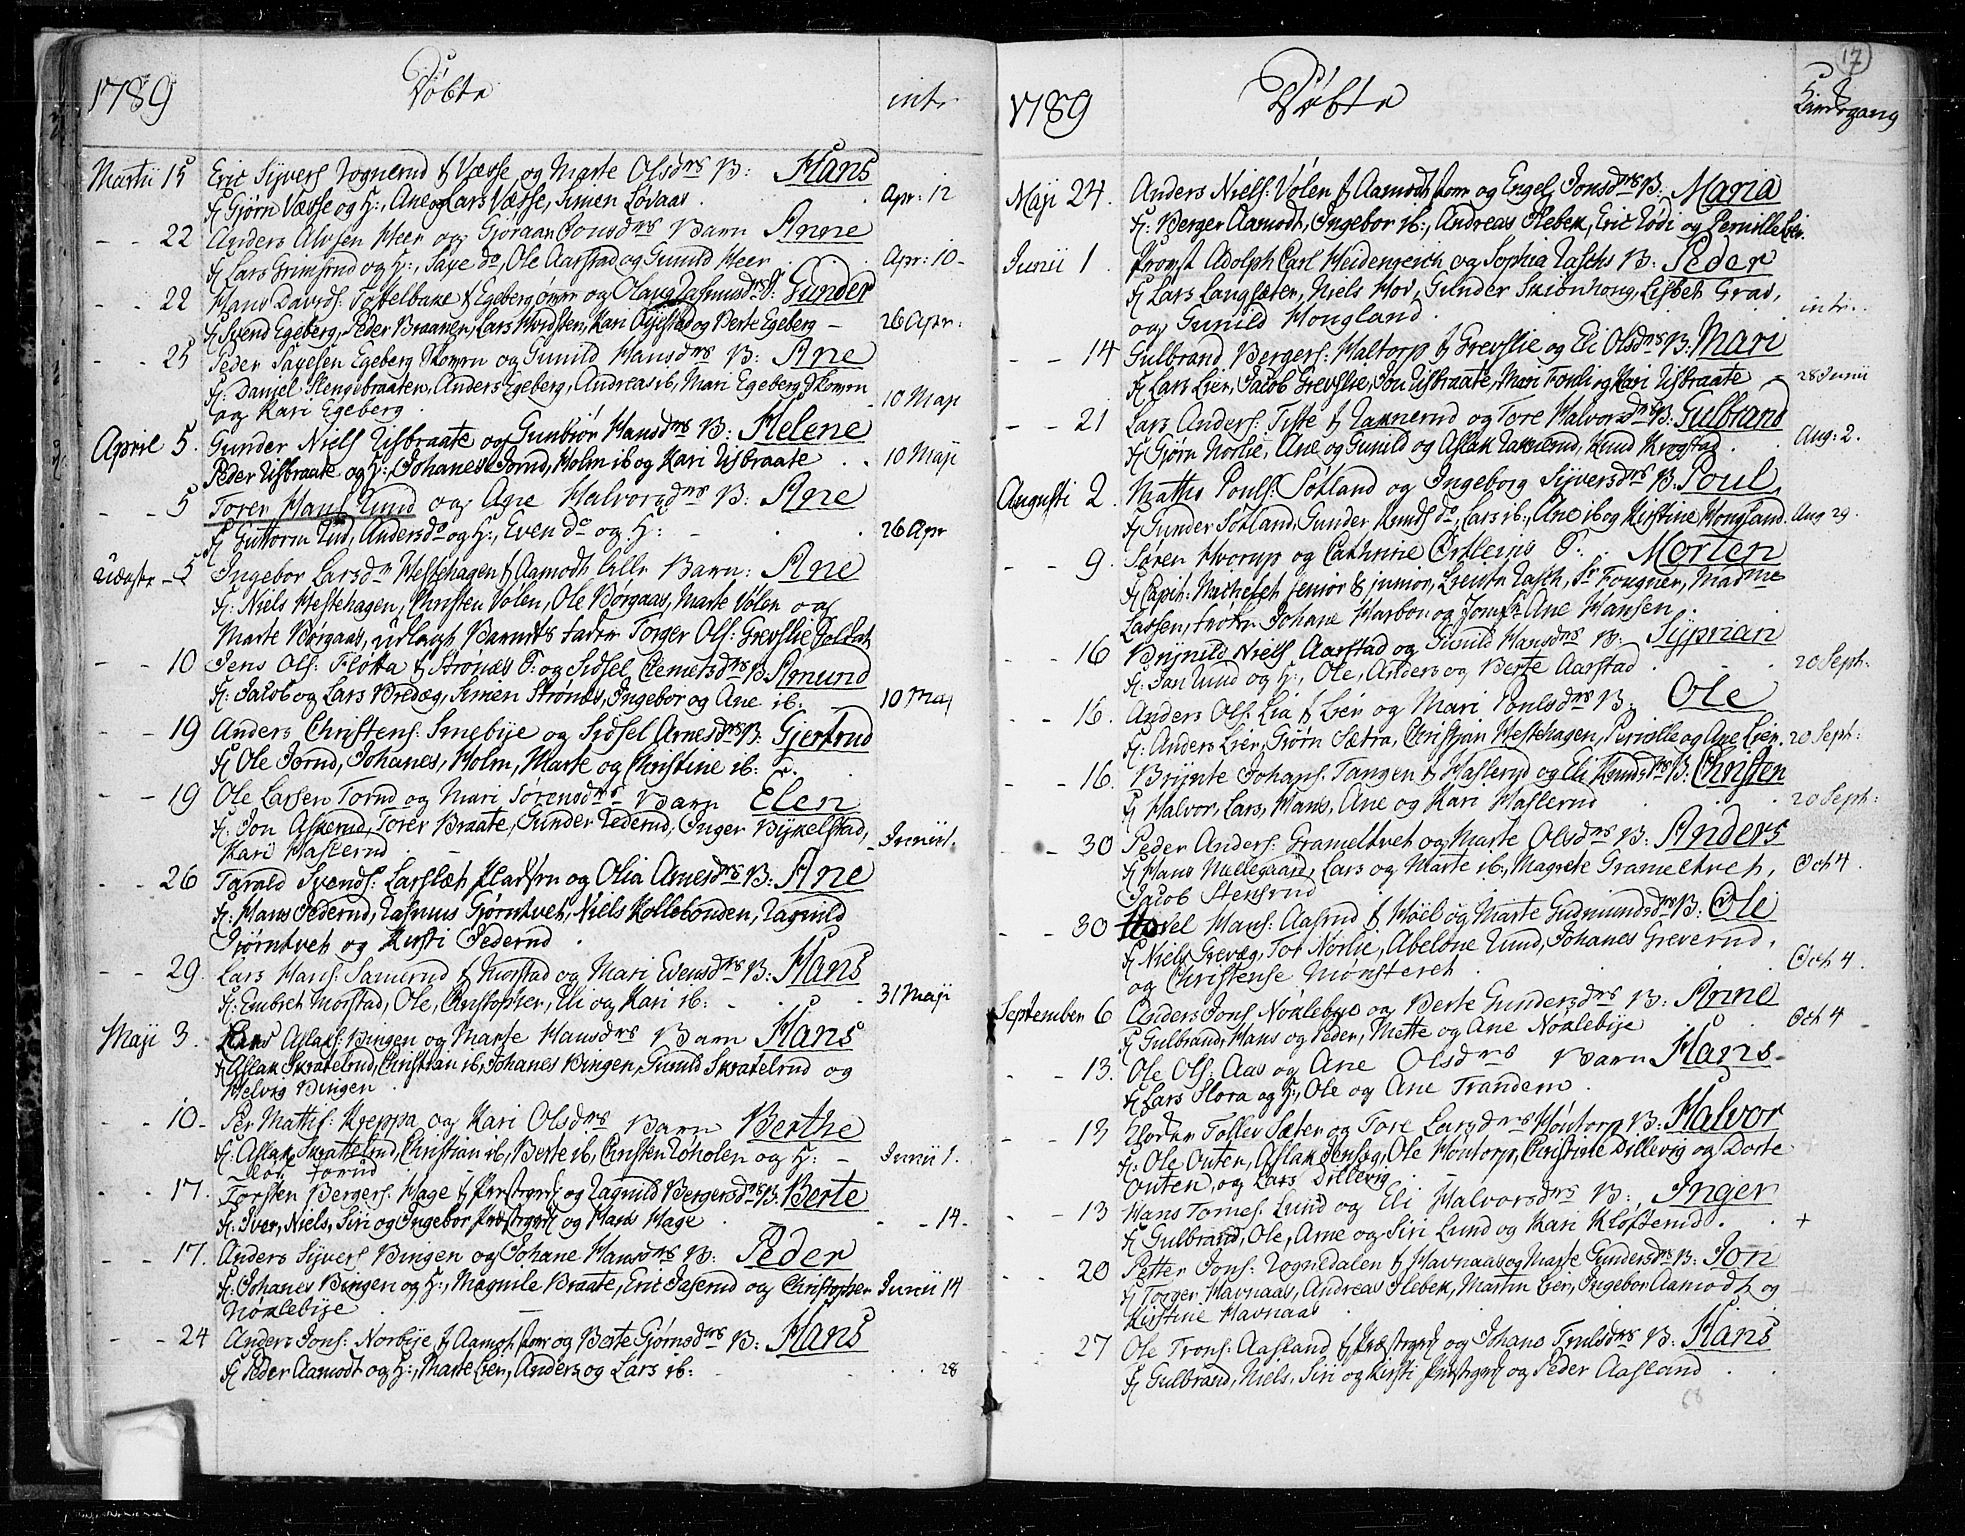 1789
Døbte
intr
Martii 15 Eric Syvers Rognerud f Væsse og Marte Olsdrs B: Hans
fJ Gjørn Væsse og H:, Ane og Lars Væsse, Simen Løvaas Apr: 12
- - 22 Anders Alvsen Heer og Gjøraan Jonsdrs Barn Anne
fJ Lars Grimsrud og H:, Saye do, Ole Aarstad og Gunild Heer Apr: 10
- - 22 Hans Davids: Toffelbake f Egeberg og Olaug Rasmusdrs B: Gunder
fJ Svend Egeberg, Peder Braanen, Lars, Kari og Berte Egeberg 26 Apr:
- - 25 Peder Sayesen Egeberg og Gunild Hansdrs B: Ane
fJ: Daniel Stengebraaten, Anders Egeberg, Andreas ib, Mari Egeberg
og Kari Egeberg. 10 Maji
April 5. Gunder Niels Risbraate og Gunbiør Hansdrs B: Helene
Peder Risbraate og H:, Johanes Torud, Holm ib og Kari Risbraate 10 Maji
- - 5 Torer Hans Lund og Ane Halvorsdrs B: Ane
fJ Guttorm Lud, Anders do og H:, Even do og H: 26 Apr
- 5 Ingebor Larsdr Hestehagen f Aamodt Barn: Ane
fJ: Niels Hestehagen, Christen Vølen, Ole Borgaas, Marte Vølen og
Marte Borgaas, udlagt Barnets fader Torger Ols: Grevslie Soldat
- - 10 Jens Ols: Flotta f Strønæs og Sidsel Clemetsdrs B: Amund
fJ: Jacob og Lars Bredæg, Simen Strønæs, Ingebor og Ane ib. 10 Maj
- - 19 Anders Christens: Smebye og Sidsel Arnesdrs B: Gjertrud
fJ Ole Torud, Johanes, Holm, Marte og Christine ib:
- - 19 Ole Larsen Torud og Mari Sorensdrs Barn Elen
fJ: Jon Askerud, Torer Braate, Gunder Rederud, Inger Bykelstad,
Kari Haslerud. Junii 1.
- - 26 Tarald Svends: Larslæt og Olia Arnesdrs B: Ane
fJ: Hans Federud, Rasmus Gjørntvet, Niels Kollebonden, Ragnild
Gjørntvet og Kirsti Federud.
- - 29. Lars Hans: Samerud f Morstad og Mari Evensdrs B: Hans
fJ: Embret Morstad, Ole, Christopher, Eli og Kari ib: 31 Maji
Maji 3. Lars Aslaks: Bingen og Marte Hansdrs Barn Hans
fJ Aslak Skratelrud, Christian ib, Johanes Bingen, Gunild Skratelrud og
Helvig Bingen.
- - 10 - Per Mattis: Kreppa og Kari Olsdrs Barn Berthe
fJ: Aslak Skrattelrud, Christian ib, Berte ib, Christen Løholen og H: - Junii 1.
- - 17. Torsten Bergers: Hage f Præstgrd og Ragnild Bergersdrs B: Berte
fJ: Iver, Niels, Siri og Ingebor Præstgrd og Hans Hage - 14 -
- - 17. Anders Syvers Bingen og Johane Hansdrs B: Peder
fJ: Johanes Bingen og H:, Magnile Braate, Eric Taserud og Christopher Junii 14
Noklebye
- - 24 Anders Jons: Norbye f Aamot og Berte Gjørnsdrs B: Hans
fJ Peder Aamodt og H:, Marte Lien, Anders og Lars ib: 28
17
1789
Døbte
Kierkegang
Maji 24. Anders Niels: Vølen f Aamodt og Engel Jonsdrs B: Maria
fJ: Berger Aamodt, Ingebor ib:, Andreas Flebek, Eric Rødi og Pernille Lien.
Junii 1. Provst Adolph Carl Heidengreich og Sophia Raschs B: Peder
fJ Lars Langsæter, Niels Hov, Gunder Skionhong, Lisbet Grav,
og Gunild Hougland. intr.
- - 14 Gulbrand Bergers: Haltorp f Grevslie og Eli Olsdrs B: Mari
fJ Lars Lier, Jacob Grevslie, Jon Risbraate, Mari Fonli og Kari Risbraate - 28 Junii
- - 21 Lars Anders: Tiste f Raknerud og Tore Halvorsdrs B: Gulbrand
fJ Gjørn Norlie, Ane og Gunild og Aslak Raknerud, Knud Krogstad. Aug: 2.
Augusti 2. Mathis Pouls: Søtland og Ingeborg Syversdrs B: Poul,
fJ Gunder Søtland, Gunder Knuds do, Lars ib:, Ane ib og Kirstine Hougland. Aug 29.
- - 9. Søren Hvorup og Cathrine Ørtleins B. Morten
fJ Capit: Machelet senior & junior, Lieutn Rasch, Sr Fougner, Madme
Lassen, frøkn Johane Harbou og Jomfr Ane Hansen.
- - 16 Brynild Niels Aarstad og Gunild Hansdrs B: Syprian
fJ: Jan Lund og H:, Ole, Anders og Berte Aarstad 20 Sept:
- - 16. Anders Ols: Lia f Lien og Mari Poulsdrs B: Ole
fJ: Anders Lien, Gjørn Sætra, Christian Hestehagen, Pernille og Ane Lien. 20 Sept:
- - 16. Brynte Johans: Tangen f Haslerud og Eli Knudsdrs B: Christen
fJ Halvor, Lars, Hans, Ane og Kari Haslerud 20 Sept:
- - 30 Peder Anders: Grameltvet og Marte Olsdrs B: Anders
fJ Hans Mellegaard, Lars og Marte ib:, Magrete Grameltvet, Oct 4.
Jacob Stensrud
- - 30 Hovel Hans: Aasrud f Høel og Marte Gudmundsdrs B: Ole
fJ Niels Grevæg, Tor Norlie, Abelone Lund, Johanes Greverud,
og Christense Mønsteret. Oct 4.
September 6 Anders Jons Noklebye og Berte Gundersdrs B: Anne
fJ Gulbrand, Hans og Peder, Mette og Ane Noklebye Oct 4 -
- - 13. Ole Ols: Aas og Ane Olsdrs Barn Hans -
fJ Lars Flora og H:, Ole og Ane Trandem.
- - 13 Tollev Sæter og Tore Larsdrs Høntorp B: Halvor
fJ: Ole Outen, Aslak Jenseg, Ole Høntorp, Christine Dillevig og Dorte
Outen, og Lars Dillevig.
- - 13 Hans Tomes: Lund og Eli Halvorsdrs B: Inger
fJ Gulbrand, Ole, Arne og Siri Lund og Kari Kløfterud. +
- - 20 Petter Jons: Rognedalen f Havnaas og Marte Gundersdrs B: Jon
fJ Torger Havnaas, Andreas Flebek, Martin Lien, Ingebor Aamodt og
Kirstine Havnaas. +
- - 27 Ole Trons: Aasland f Præstgrd og Johane Truelsdrs B: Hans
fJ Gulbrand, Niels, Siri og Kirsti Præstgrd og Peder Aasland
68